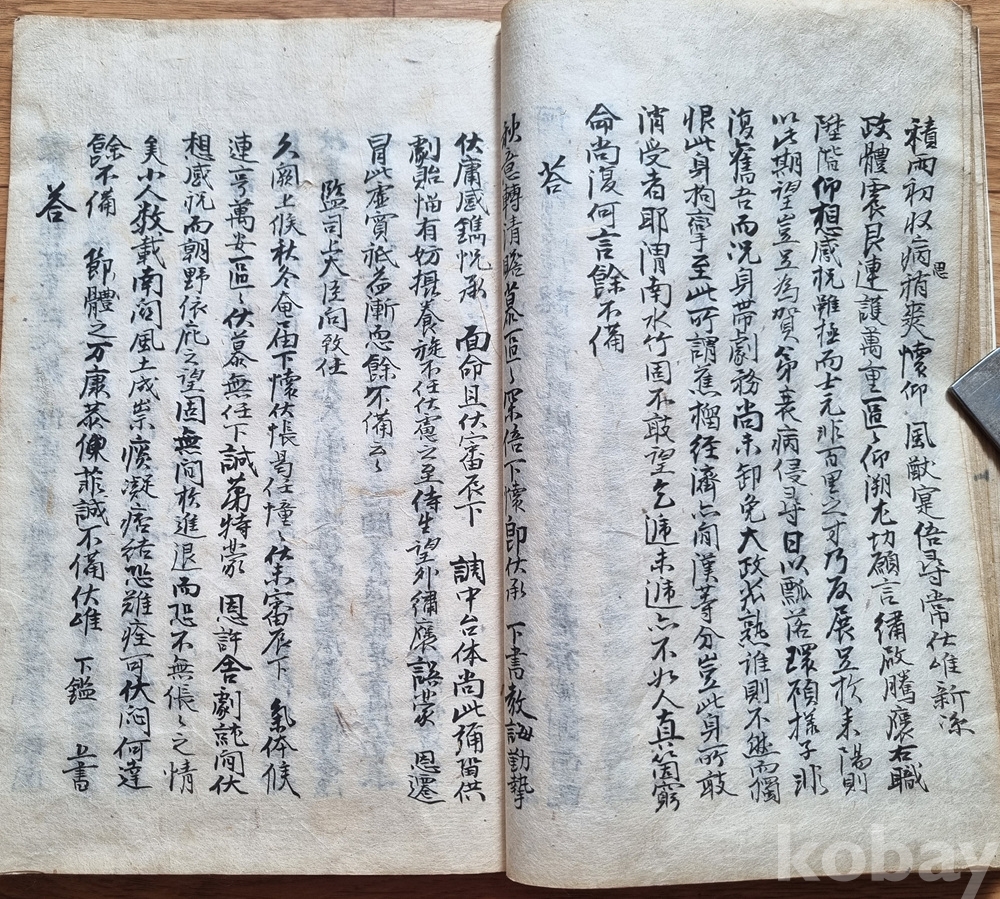 積雨初収病稍爽懷仰 風猷寔倍尋常伏惟新凉
思
政體震艮連護萬重區〻仰溯尤切願言繡啟騰褒右職
陞階仰想感祝難極而士元非百里之才乃反展足於耒陽則
以此期望豈足為賀弟衰病侵尋日以瓢落環顧樣子非
復舊吾而况身帶劇務尚未卸免大政孔熟誰則不熊而獨
恨此身拘牽至此所謂蕉榴經濟亦閒漢等分豈此身所敢
消受者耶渭南水竹固不敢望乞遞未遞亦不如人真箇窮
命尚復何言餘不備
答
秋意轉清瞻慕區〻深倍下懷即伏承 下書教誨勤摯
伏庸感鐫怳承 面命且伏審辰下 調中台体尚此彌留供
劇貽惱有妨攝養旋不任伏慮之至侍生望外繡褒認蒙 恩遷
冒此虛實祗益漸恧餘不備云〻
監司上大臣向致任
久闕上候秋冬奄届下懷伏悵曷任憧〻伏未審辰下 氣体候
連亨萬安區〻伏慕無任下誠第特蒙 恩許舍劇就閒伏
想感祝而朝野依庇之望固無間於進退而恐不無倀〻之情
矣小人數載南閫風土成祟痰凝痞結恐難痊可伏悶何達
餘不備 節體之万康恭候菲誠不備伏惟 下鑑 上書
答
kobay